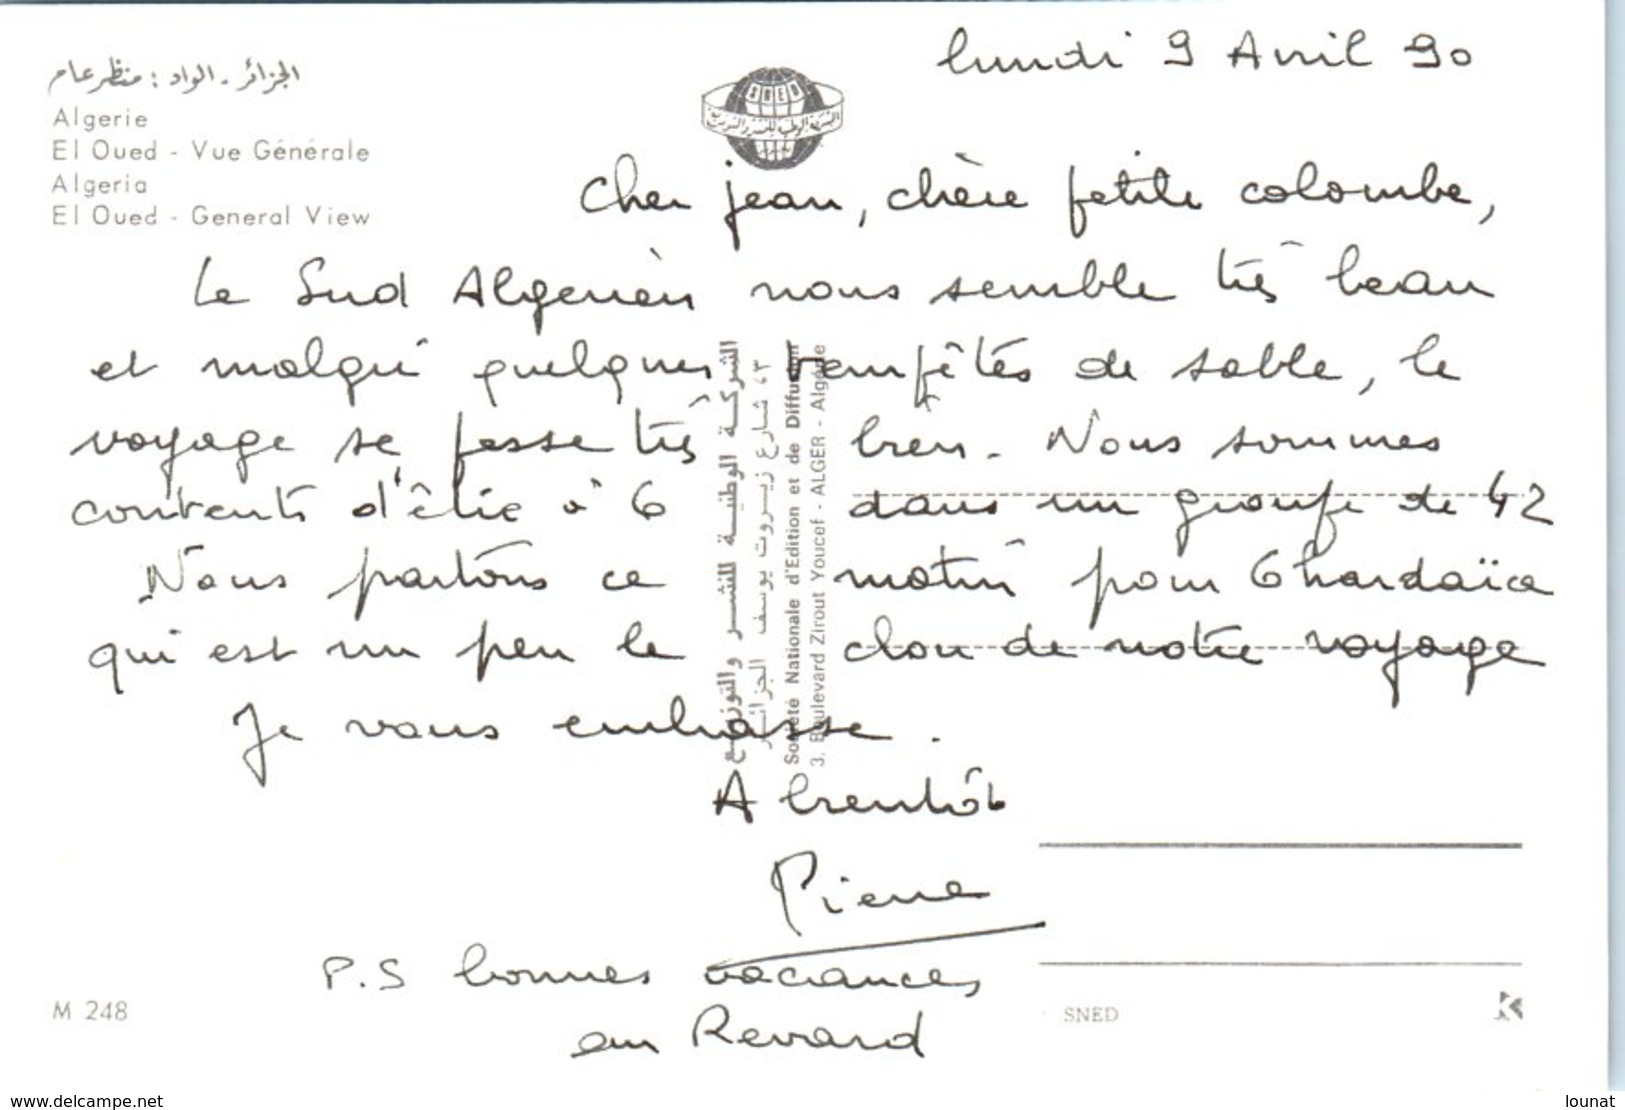 lundi 9 Avril 90
الجزائر - الواد : منظر عام
Algerie
El Oued - Vue Générale
Algeria
El Oued - General View
SNED
Cher jean, chère petite colombe,
Le Sud Algerien nous semble très beau
et malgré quelques tempêtes de sable, le
voyage se passe très bien. Nous sommes
contents d'être à 6 dans un groupe de 42
Nous partons ce matin pour Ghardaïa
qui est un peu le clou de notre voyage
Je vous embrasse.
A bientôt
Pierre
P.S bonnes vacances
au Revard
الشركة الوطنية للنشر والتوزيع
٣، شارع زيروت يوسف الجزائر
Société Nationale d'Edition et de Diffusion
3, Boulevard Zirout Youcef - ALGER - Algérie
M 248
SNED
K
www.delcampe.net
lounat